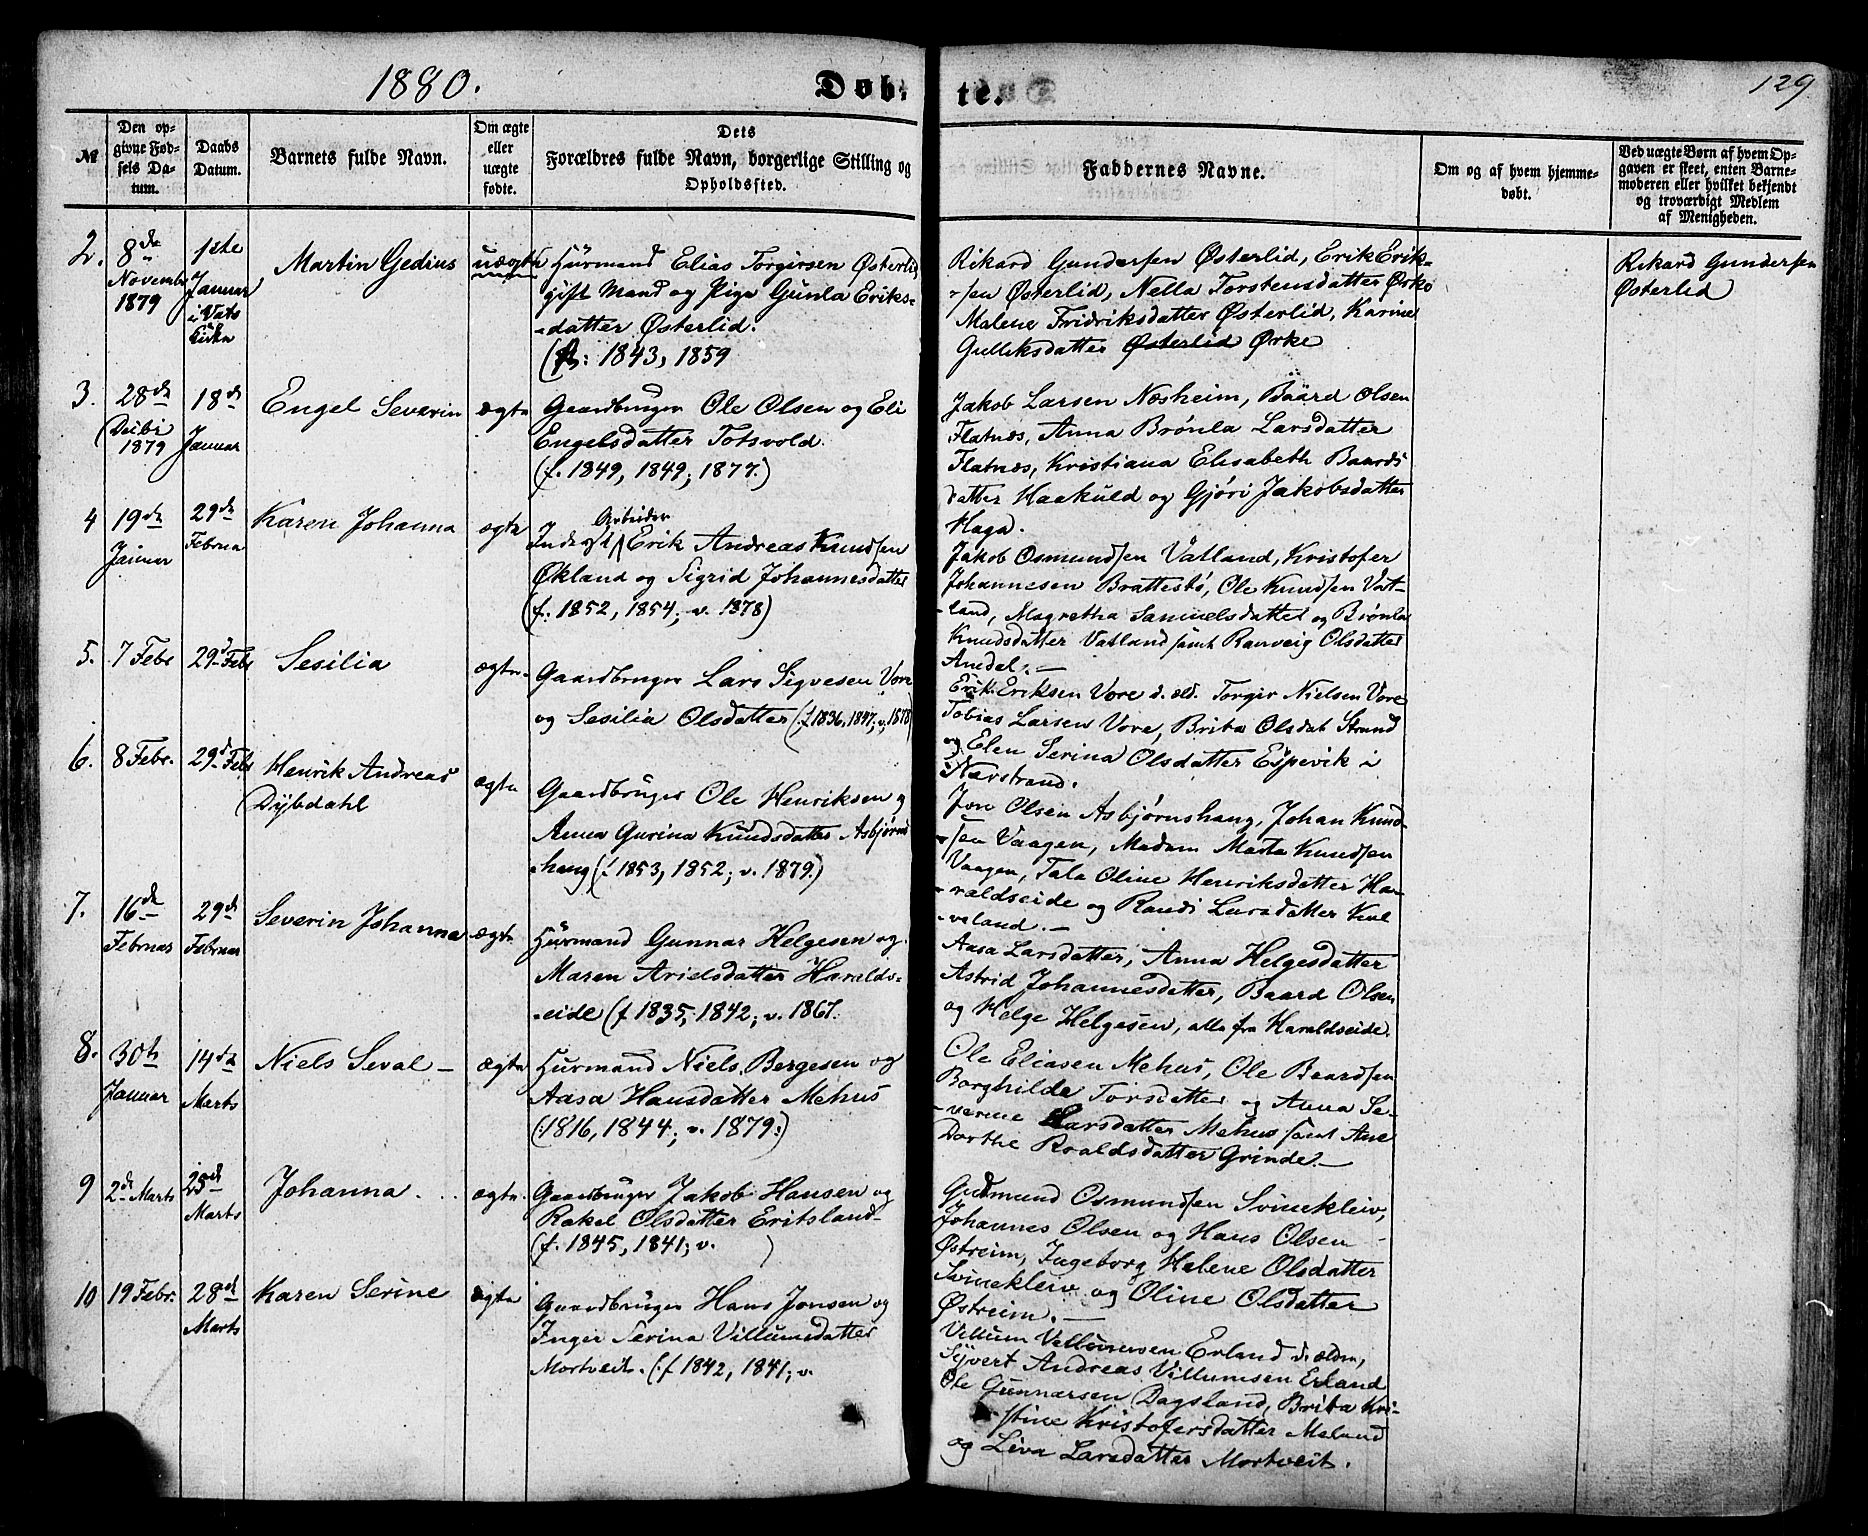 1880.
Døb-
te.
129
№
Den op-
givne Fød-
sels Da-
tum.
Daabs
Datum.
Barnets fulde Navn.
Om ægte
eller
uægte
fødte.
Dets
Forældres fulde Navn, borgerlige Stilling og
Opholdssted.
Faddernes Navne.
Om og af hvem hjemme-
døbt.
Ved uægte Børn af hvem Op-
gaven er skeet, enten Barne-
moderen eller hvilket bekjendt
og troværdigt Medlem
af Menigheden.
2.
8de
Novembr
1879
1ste
Januar
i Vats
Kirke
Martin Gedius
uægte
Huusmand Elias Torgersen Østerlid,
gift Mand og Pige Gunla Eriks-
datter Østerlid.
(f.: 1843, 1859
Rikard Gundersen Østerlid, Erik Erik-
sen Østerlid, Nella Torstensdatter Ørke
Malene Fridriksdatter Østerlid, Karine
Gulleksdatter Østerlid Ørke
Rikard Gundersen
Østerlid
3.
28de
Decbr
1879
18de
Januar
Engel Severin
ægte
Gaardbruger Ole Olsen og Eli
Engelsdatter Totsvold.
(f. 1849, 1849; 1877.)
Jakob Larsen Næsheim, Baard Olsen
Flatnæs, Anna Brønla Larsdatter
Flatnæs, Kristiana Elisabeth Baards
datter Haakuld og Gjøri Jakobsdatter
Haga.
4
19de
Januar
29de
Februa
Karen Johanna
ægte
Arbeider
Inderst Erik Andreas Knudsen
Økland og Sigrid Johannesdatter
(f. 1852, 1854; v. 1878)
Jakob Osmundsen Vatland, Kristofer
Johannesen Brattestø, Ole Knudsen Vat-
land, Magretha Samuelsdatter og Brønla
Knudsdatter Vatland samt Ranveig Olsdatter
Amdal.
5.
7 Febr
29d Febr
Sesilia
ægte
Gaardbruger Lars Sigvesen Vore
og Sesilia Olsdatter (f. 1836, 1847; v. 1878)
Erik Eriksen Vore d. æld. Torger Nielsen Vore
Tobias Larsen Vore, Brita Olsdat Strand
og Elen Serina Olsdatter Espevik i
Nærstrand.
6.
8 Febr.
29d Febr
Henrik Andreas
Dybdahl
ægte
Gaardbruger Ole Henriksen og
Anna Gurina Knudsdatter Asbjørns-
haug (f 1853, 1852; v. 1879.)
Jon Olsen Asbjørnshaug, Johan Knud-
sen Vaagen, Madam Marta Knudsen
Vaagen, Tala Oline Henriksdatter Ha-
raldseide og Randi Larsdatter Kvl
veland.
7.
16de
Februar
29de
Februar
Severin Johanna
ægte
Huusmand Gunnar Helgesen og
Maren Arielsdatter Haralds-
eide (f 1835, 1842; v. 1867.
Aasa Larsdatter, Anna Helgesdatter
Astrid Johannesdatter, Baard Olsen
og Helge Helgesen, alle fra Haraldseide.
8.
30te
Januar
14de
Marts
Niels Seval
ægte
Huusmand Niels Bergesen og
Aasa Hansdatter Mehus
(1816, 1844; v. 1879.)
Ole Eliasen Mehus, Ole Baardsen
Borghilde Torsdatter og Anna Se-
verine Larsdatter Mehus samt Ane
Dorthe Roaldsdatter Grinde.
9
2de Marts
25de
Marts
Johanna
ægte
Gaardbruger Jakob Hansen og
Rakel Olsdatter Eritsland
(f. 1845, 1841; v. )
Gudmund Osmundsen Svinekleiv,
Johannes Olsen og Hans Olsen
Østreim, Ingeborg Helene Olsdatter
Svinekleiv og Oline Olsdatter
Østreim.
10
19 Febr.
28de
Marts
Karen Serine
ægte
Gaardbruger Hans Jonsen og
Inger Serina Villumsdatter
Mortveit. (f 1842, 1841; v.
Villum Villumsen Erland d. ældre,
Sjvert Andreas Villumsen Erland
Ole Gunnarsen Dagsland, Brita Kri-
stine Kristofersdatter Meland
og Liva Larsdatter Mortveit.